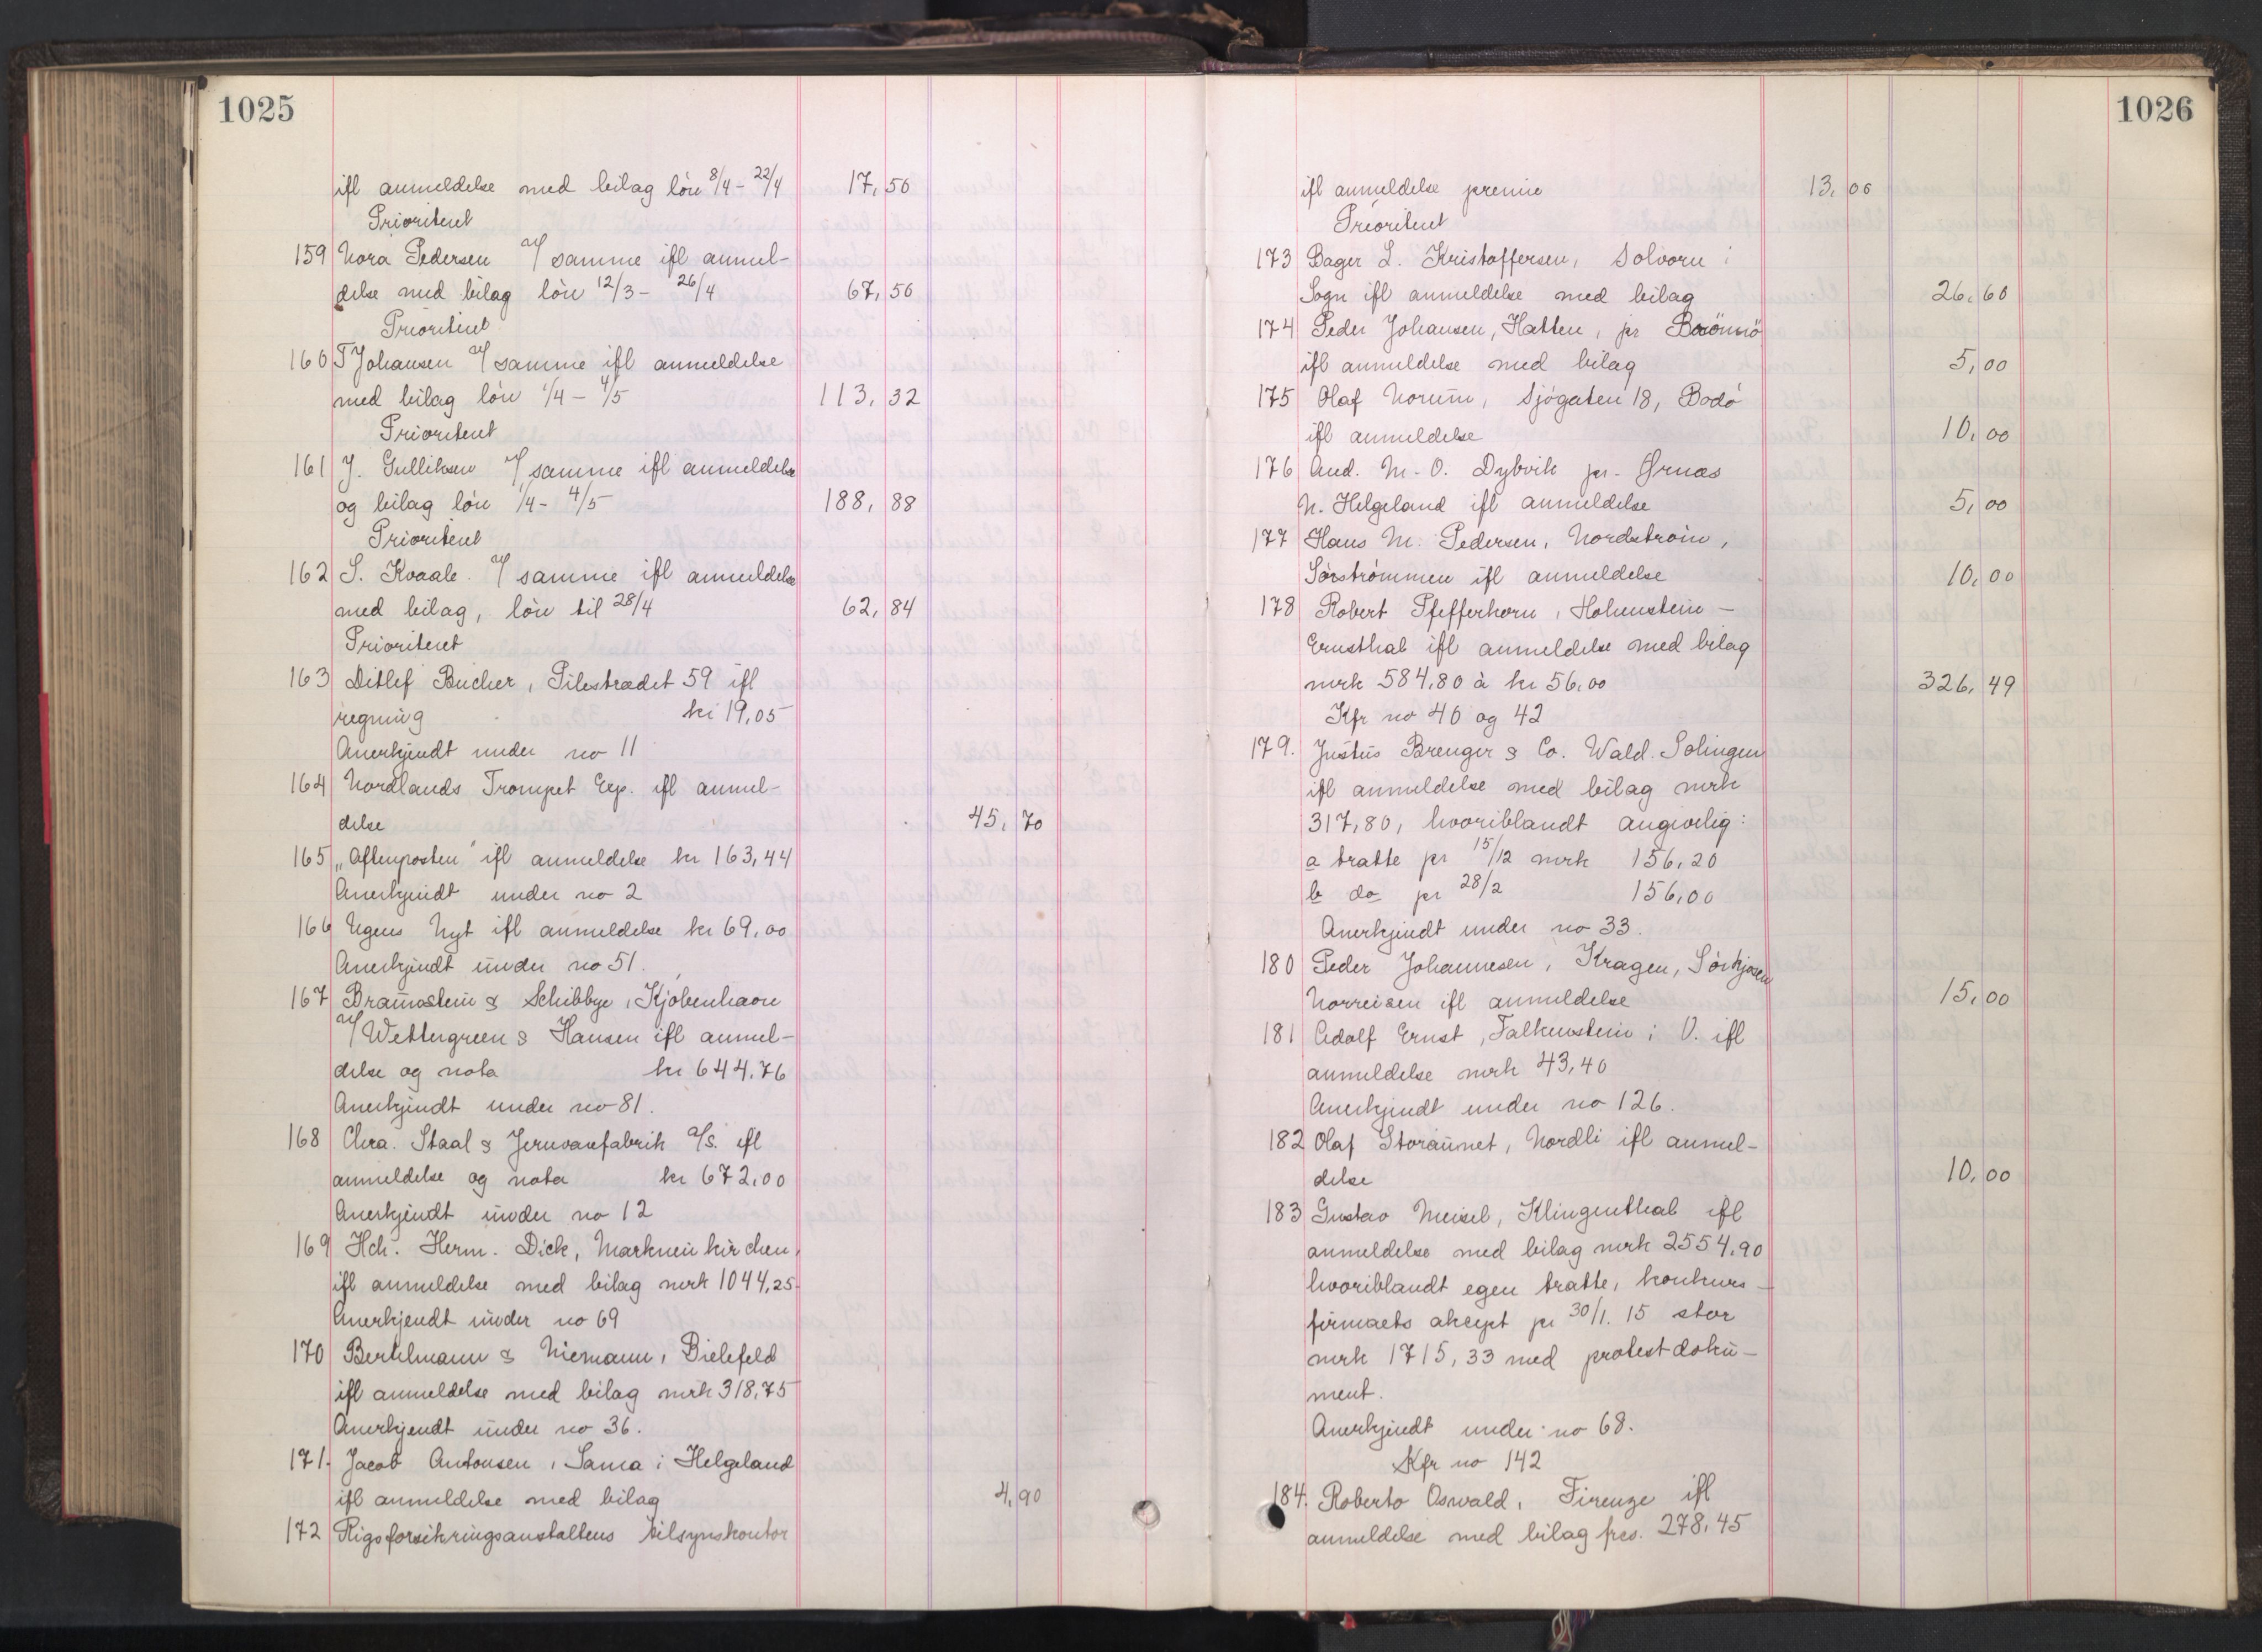 1025
ifl anmeldelse med bilag lön 8/4 - 22/4 17,50
Prioriteret
159 Nora Pedersen av/ samme ifl anmel-
delse med bilag lön 12/3 - 26/4 67,50
Prioriteret
160 T Johansen av/ samme ifl anmeldelse
med bilag lön 1/4 - 4/5 113,32
Prioriteret
161 J. Gulliksen av/ samme ifl anmeldelse
og bilag lön 1/4 - 4/5 188,88
Prioriteret
162 S. Kvaale. av/ samme ifl anmeldelse
med bilag, lön til 28/4 62,84
Prioriteret
163 Ditlef Bucher, Pilestrædet 59 ifl
regning kr 19,05
Anerkjendt under no 11
164 Nordlands Trompet Exp. ifl anmel-
delse 45,70
165 "Aftenposten" ifl anmeldelse kr 163,44
Anerkjendt under no 2
166 Ugens Nyt ifl anmeldelse kr 69,00
Anerkjendt under no 51.
167 Braunstein & Schibbye, Kjöbenhavn
av/ Wettergreen & Hansen ifl anmel-
delse og nota kr 644.76
Anerkjendt under no 81.
168 Chra. Staal & Jernvarefabrik A/S. ifl
anmeldelse og nota kr 672,00
Anerkjendt under no 12
169 Hch. Herm. Dick, Markneukirchen,
ifl anmeldelse med bilag mrk 1044,25
Anerkjendt under no 69
170 Bertelmann & Niemann, Bielefeld
ifl anmeldelse med bilag mrk 318,75
Anerkjendt under no 36.
171. Jacob Antonsen, Sama i Helgeland
ifl anmeldelse med bilag 4,90
172 Rigsforsikringsanstaltens tilsynskontor
1026
ifl anmeldelse premie 13,00
Prioriteret
173 Bager L. Kristoffersen, Solvorn i
Sogn ifl anmeldelse med bilag 26,60
174 Peder Johansen, Hatten, pr Brönnö
ifl anmeldelse med bilag 5,00
175 Olaf Norum, Sjögaten 18, Bodö
ifl anmeldelse 10,00
176 And. M. O. Dybvik pr. Ørnas
N. Helgeland ifl anmeldelse 5,00
177 Hans M. Pedersen, Nordström,
Sörströmmen ifl anmeldelse 10,00
178 Robert Pfefferkorn, Hohenstein-
Ernstthal ifl anmeldelse med bilag
mrk 584,80 à kr 56,00 326,49
Kfr no 40 og 42
179. Justus Brenger & Co. Wald. Solingen
ifl anmeldelse med bilag mrk
317,80, hvoriblandt angivelig:
a tratte pr 15/12 mrk 156,20
b do pr 28/2 156,00
Anerkjendt under no 33.
180 Peder Johannesen, Kragen, Sörkjosen
Norreisen ifl anmeldelse 15,00
181 Adolf Ernst, Falkenstein i V. ifl
anmeldelse mrk 43,40
Anerkjendt under no 126.
182 Olaf Storaunet, Nordli ifl anmel-
delse 10,00
183 Gustav Meisel, Klingenthal ifl
anmeldelse med bilag mrk 2554,90
hvoriblandt egen tratte, konkurs-
firmaets aksept pr 30/1. 15 stor
mrk 1715,33 med protestdoku-
ment.
Anerkjendt under no 68.
Kfr no 142
184. Roberto Oswald, Firenze ifl
anmeldelse med bilag frcs. 278,45